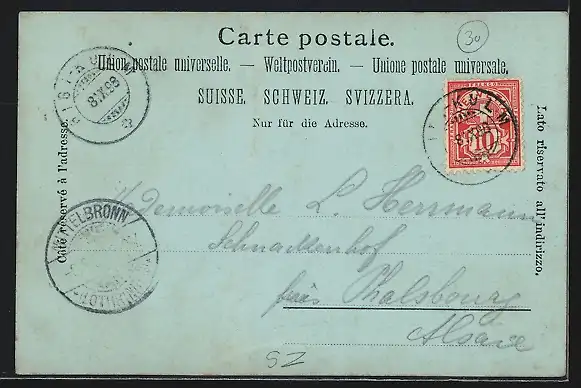 Carte postale.
30
Union postale universelle. — Weltpostverein. — Unione postale universale,
SUISSE. SCHWEIZ. SVIZZERA.
Nur für die Adresse.
RIGI-KULM
8.IX.98
FRANCO
10
8.IX.98
Côté réservé à l'adresse.
Lato riservato all'indirizzo.
Mademoiselle L. Herrmann
Schnackenhof
près Phalsbourg
Alsace
MITTELBRONN
SZ